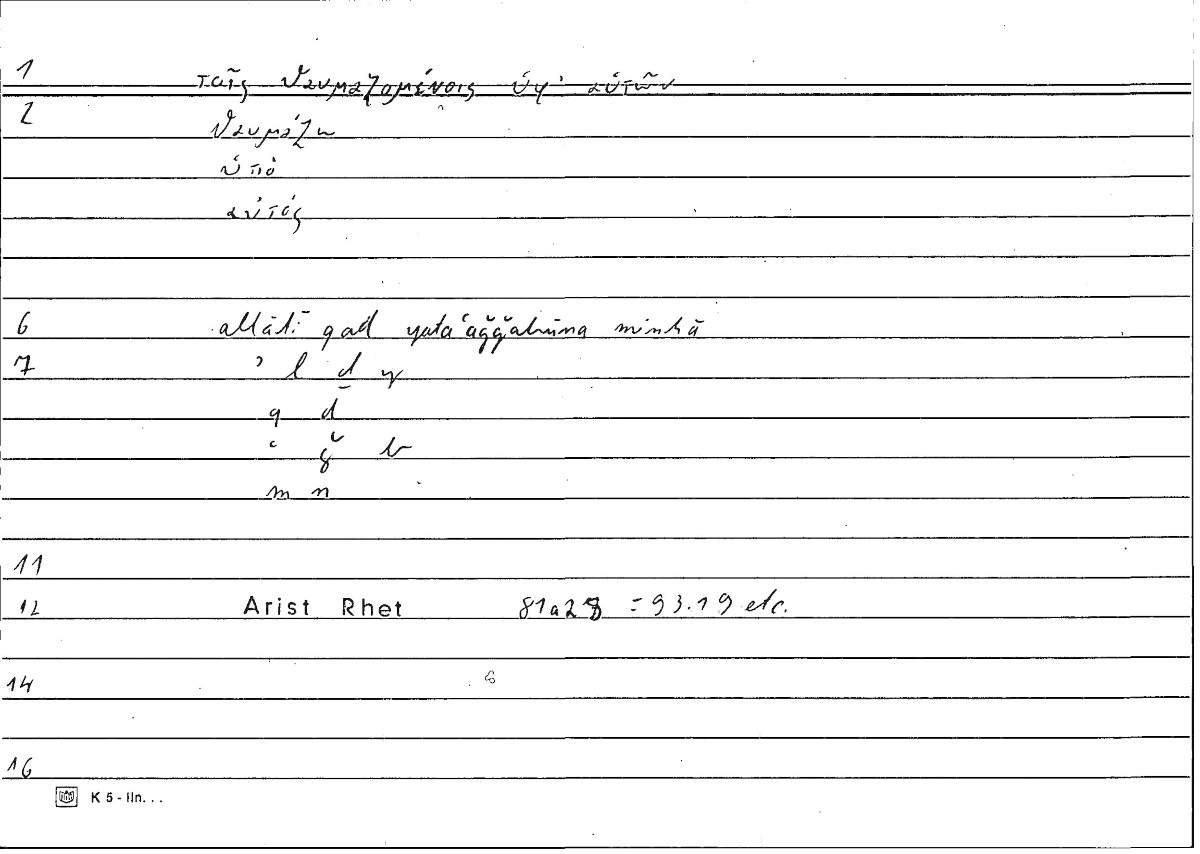 1 ταῖς θαυμαζομένοις ὑφ' αὑτῶν
2 θαυμάζω
ὑπό
αὑτός
6 allātī qad yataʿaǧǧabūna minhā
7 ʾ l ḏ y
q d
ʿ ǧ b
m n
11
12 Arist Rhet 81a28 = 93.19 etc.
14
16
K 5 - lln. . .